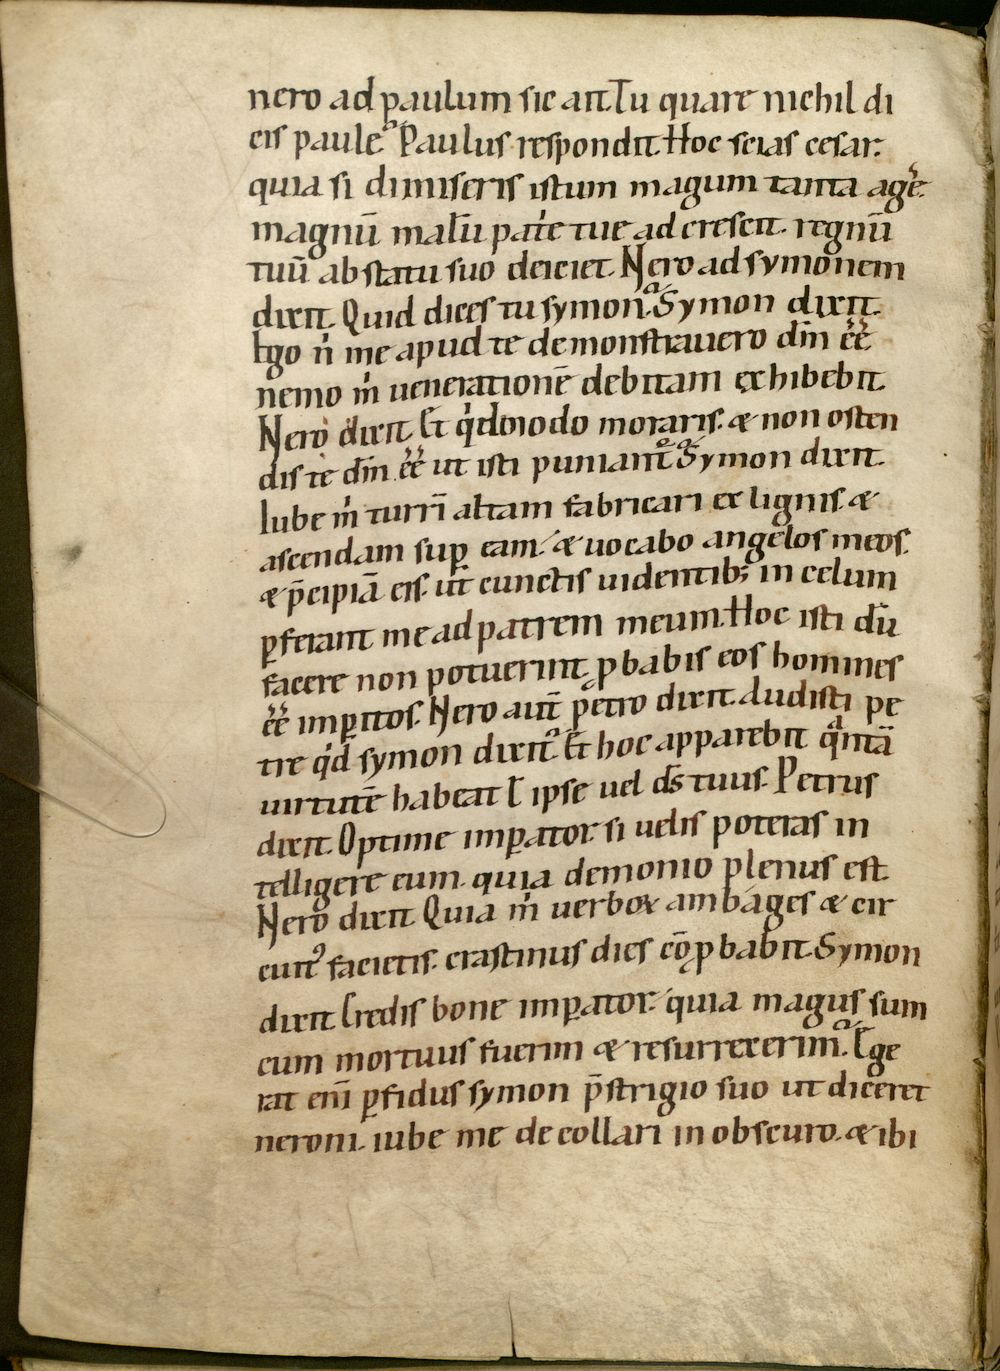 nero ad paulum sic ait. Tu quare nichil di
cis paule? Paulus respondit. Hoc scias cesar.
quia si dimiseris istum magum tanta agere.
magnū malū patie tue ad crescit. regnū
tuū ab statu suo deiciet. Nero ad symonem
dixit. Quid dices tu symon? Symon dixit.
Ego n̄ me apud te demonstrauero dm̄ ee̅
nemo m̍ uenerationē debitam exhibebit.
Nero dixit. Et q̍dmodo moraris. & non osten
dis te dm̄ ee̅ ut isti puniant᷑? Symon dixit.
Iube m̍ turrī altam fabricari ex lignis. &
ascendam suꝑ eam. & uocabo angelos meos.
& p̄cipiā eis. ut cunctis uidentib; in celum
ꝑferant me ad patrem meum. Hoc isti dū
facere non potuerint. ꝓbabis eos homines
ee̅ imꝑitos. Nero aut̄ petro dixit. Audisti pe
tre qd̍ symon dixit? Et hoc apparebit qᵃntā
uirtutē habeat ł ipse uel ds̄ tuus. Petrus
dixit. Optime imꝑator. si uelis poteras in
telligere eum. quia demonio plenus est.
Nero dixit Quia m̍ uerboꝝ ambages & cir
cuit᷒ facietis. crastinus dies cōꝓbabit. Symon
dixit Credis bone imꝑator. quia magus sum
cum mortuus fuerim & resurrexerim? Ege
rat enī ꝑfidus symon p̄strigio suo ut diceret
neroni. iube me decollari in obscuro. & ibi